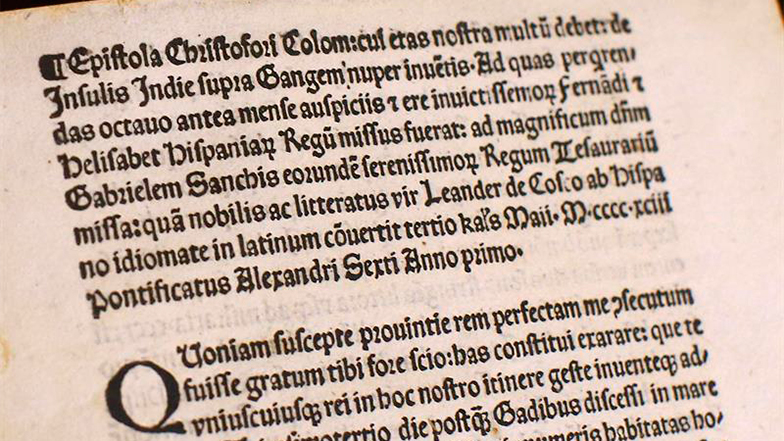 ¶ Epistola Christofori Colom: cui etas nostra multū debet: de
Insulis Indie supra Gangem nuper inuētis. Ad quas perqren-
das octauo antea mense auspiciis ⁊ ere inuictissemoꝝ Fernādi ⁊
Helisabet Hispaniaꝝ Regū missus fuerat: ad magnificum dñm
Gabrielem Sanchis eorundē serenissimoꝝ Regum Tesaurariū
missa: quā nobilis ac litteratus vir Leander de Cosco ab Hispa
no idiomate in latinum cōuertit tertio kaľs Maii. M.cccc.xciii
Pontificatus Alexandri Sexti Anno primo.
Quoniam suscepte prouintie rem perfectam me ꝯsecutum
fuisse gratum tibi fore scio: has constitui exarare: que te
vniuscuiusqꝫ rei in hoc nostro itinere geste inuenteqꝫ ad-
die postqꝫ Gadibus discessi in mare
numeris habitatas ho-